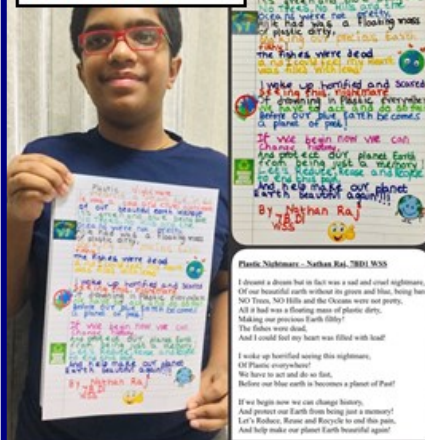 Oceans were not pretty
it had was a floating mass
of plastic dirty,
Making our precious Earth
filthy!
The fishes were dead
was filled with lead!
I woke up horrified and scared
Seeing this nightmare
Of drowning in Plastic everywhere
We have to act and do so fast
Before our blue Earth becomes
a planet of past!
If we begin now we can
change history,
And protect our planet Earth
from being just a memory!
Let's Reduce, Reuse and Recycle
to end this pain
And help make our planet
Earth beautiful again!!!
By Nathan Raj
7BD1
WSS
Plastic Nightmare
of our beautiful earth without
Oceans were not pretty
it had was a floating mass
of plastic dirty,
The fishes were dead
I woke up horrified and scared
Seeing this nightmare
Of drowning in Plastic everywhere
Before our blue Earth becomes
a planet of past!
If we begin now we can
change history,
And protect our planet Earth
from being just a memory!
Let's Reduce, Reuse and Recycle
to end this pain
And help make our planet
Earth beautiful again!!!
By Nathan Raj
7BD1
WSS
Plastic Nightmare – Nathan Raj, 7BD1 WSS
I dreamt a dream but in fact was a sad and cruel nightmare,
Of our beautiful earth without its green and blue, being bare
NO Trees, NO Hills and the Oceans were not pretty,
All it had was a floating mass of plastic dirty,
Making our precious Earth filthy!
The fishes were dead,
And I could feel my heart was filled with lead!
I woke up horrified seeing this nightmare,
Of Plastic everywhere!
We have to act and do so fast,
Before our blue earth is becomes a planet of Past!
If we begin now we can change history,
And protect our Earth from being just a memory!
Let's Reduce, Reuse and Recycle to end this pain,
And help make our planet Earth beautiful again!